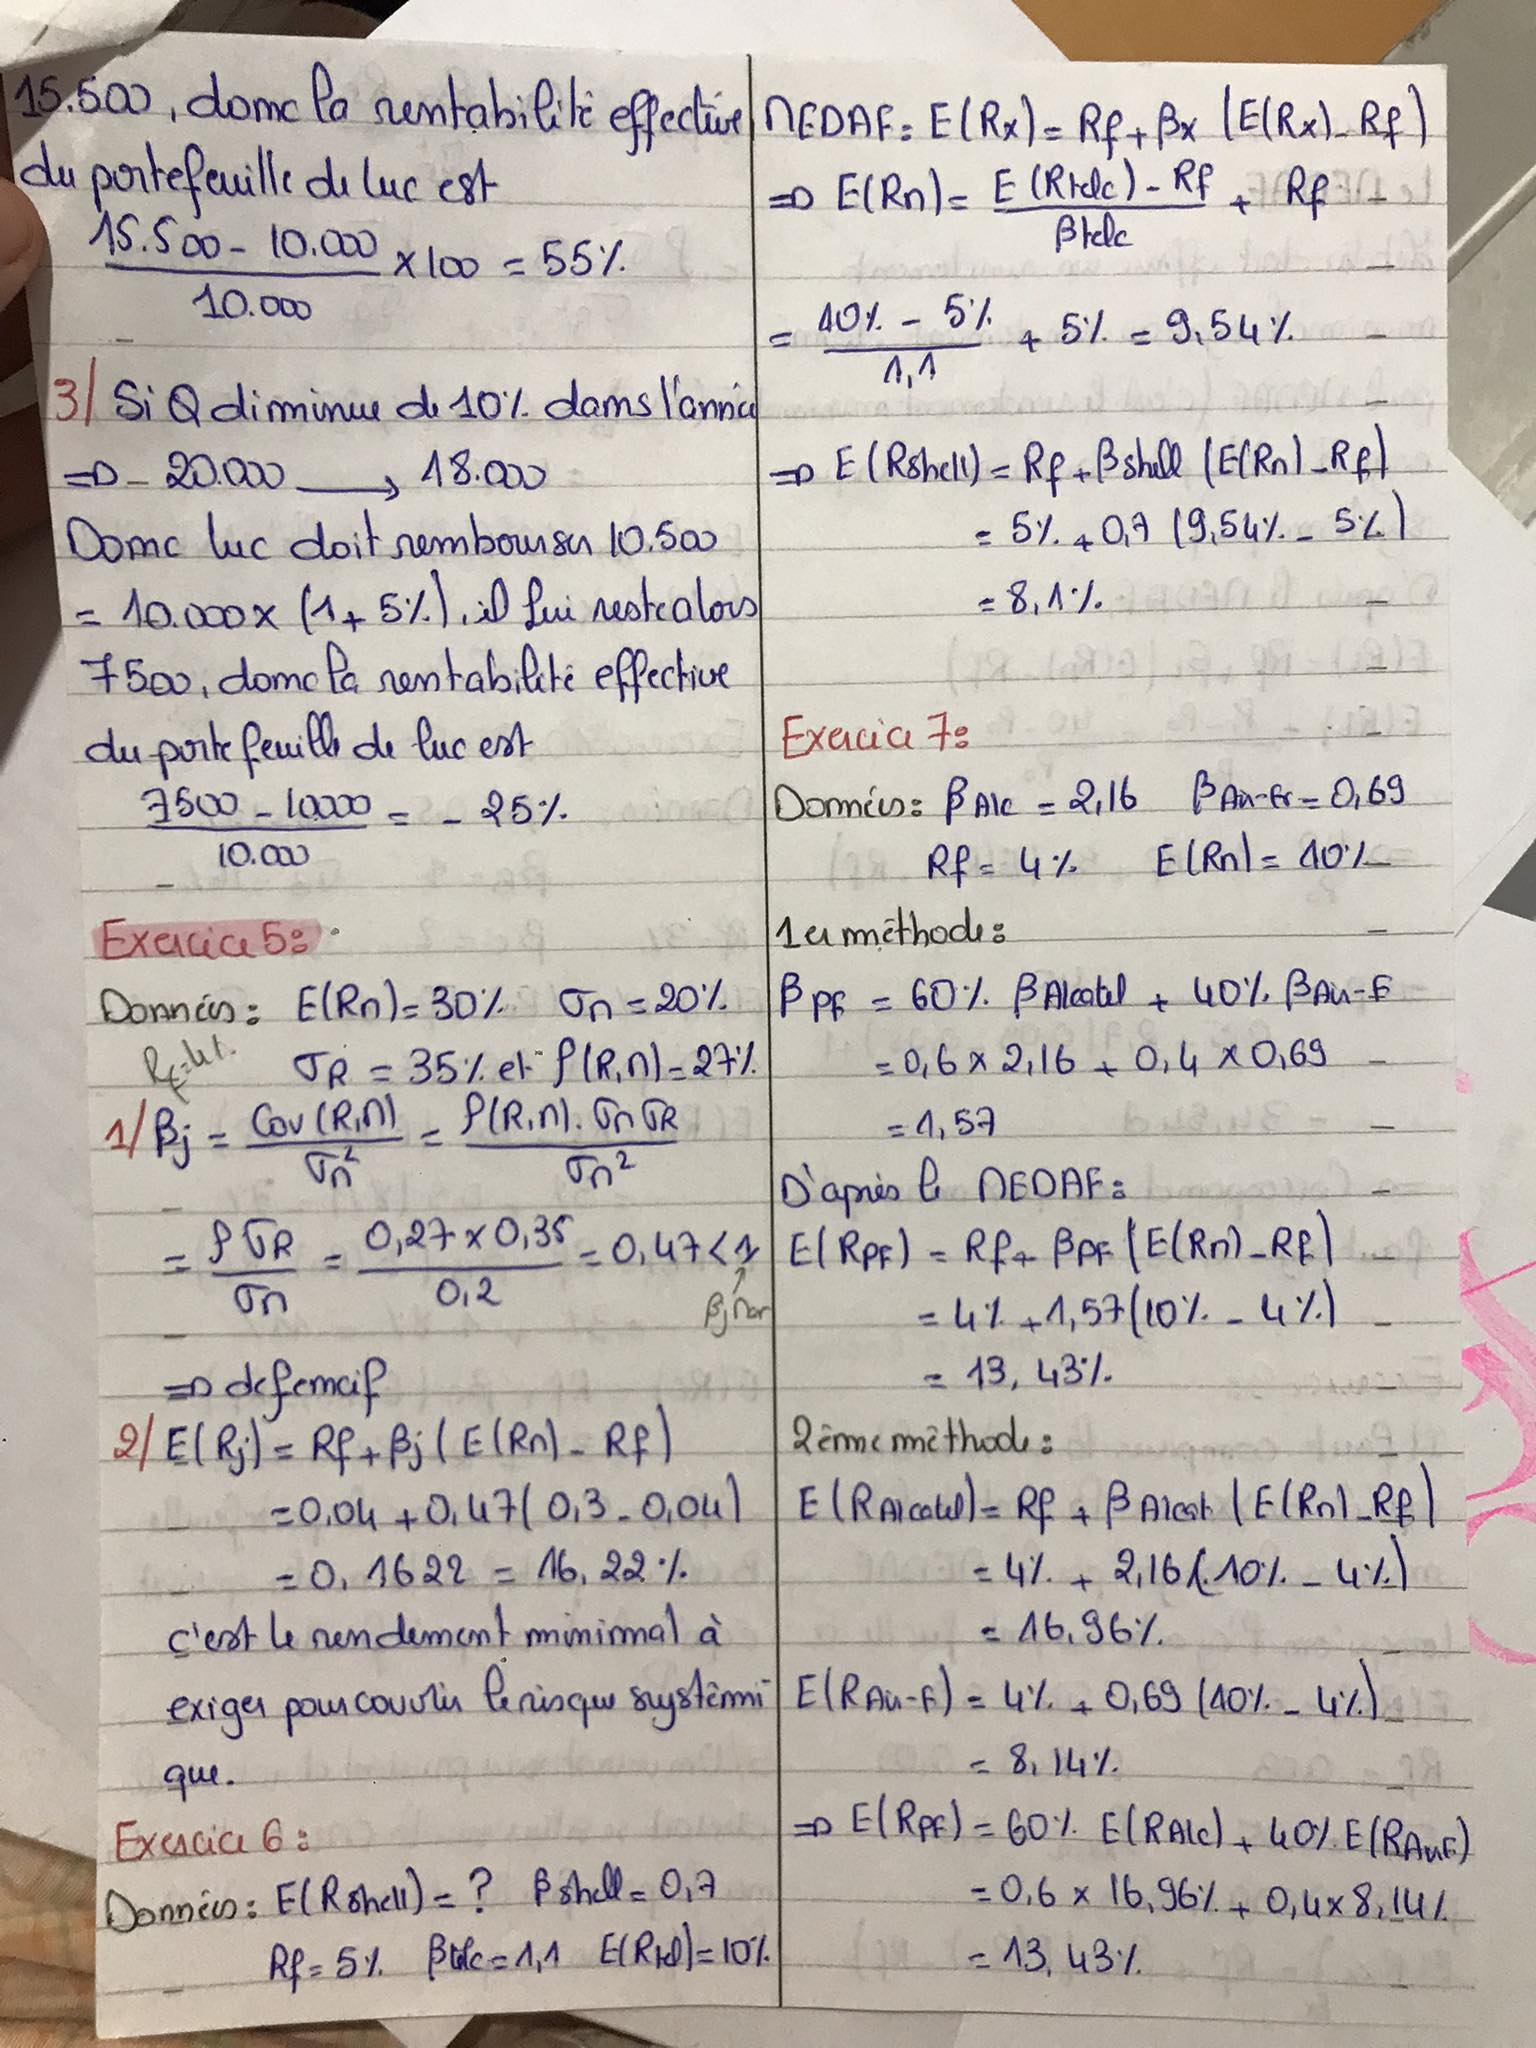 15.500, donc la rentabilité effective
du portefeuille de luc est
15.500 - 10.000 / 10.000 × 100 = 55%
3/ Si Q diminue de 10% dans l'année
=> - 20.000 → 18.000
Donc luc doit rembourser 10.500
= 10.000 × (1 + 5%), il lui reste alors
7500, donc la rentabilité effective
du portefeuille de luc est
7500 - 10000 / 10.000 = - 25%
Exercice 5:
Données: E(Rn) = 30% σn = 20%
Rf = 4%
σR = 35% et ρ(R,n) = 27%
1/ βj = Cov(R,n) / σn² = ρ(R,n) . σn σR / σn²
= ρ σR / σn = 0,27 × 0,35 / 0,2 = 0,47 < 1
=> defensif
2/ E(Rj) = Rf + βj (E(Rn) - Rf)
= 0,04 + 0,47 (0,3 - 0,04)
= 0,1622 = 16,22%
c'est le rendement minimal à
exiger pour couvrir le risque systémi
que.
Exercice 6:
Données: E(Rshell) = ? βshell = 0,7
Rf = 5% βtelc = 1,1 E(Rtel) = 10%
MEDAF: E(Rx) = Rf + βx (E(Rx) - Rf)
=> E(Rn) = E(Rtelc) - Rf / βtelc + Rf
= 10% - 5% / 1,1 + 5% = 9,54%
=> E(Rshell) = Rf + βshell (E(Rn) - Rf)
= 5% + 0,7 (9,54% - 5%)
= 8,1%
Exercice 7:
Données: βAlc = 2,16 βAir-Fr = 0,69
Rf = 4% E(Rn) = 10%
1er méthode:
βPF = 60% βAlcatel + 40% βAir-F
= 0,6 × 2,16 + 0,4 × 0,69
= 1,57
D'après le MEDAF:
E(RPF) = Rf + βPF (E(Rn) - Rf)
= 4% + 1,57 (10% - 4%)
= 13,43%
2ème méthode:
E(RAlcatel) = Rf + βAlcat (E(Rn) - Rf)
= 4% + 2,16 (10% - 4%)
= 16,96%
E(RAir-F) = 4% + 0,69 (10% - 4%)
= 8,14%
=> E(RPF) = 60% E(RAlc) + 40% E(RAirF)
= 0,6 × 16,96% + 0,4 × 8,14%
= 13,43%